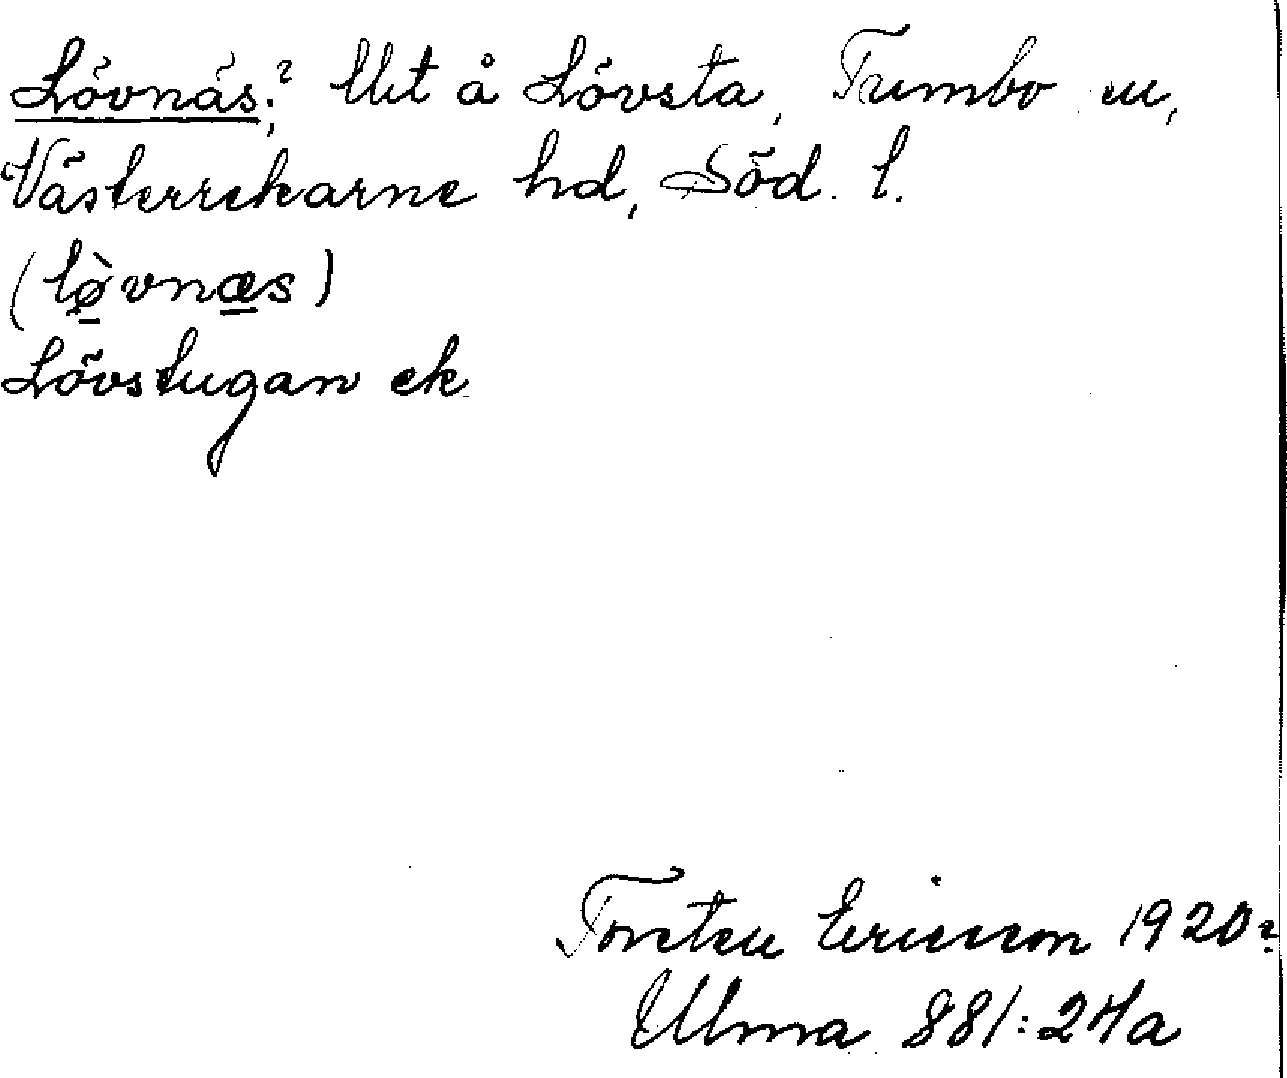 Lövnäs;? Ut å Lövsta, Tumbo sn,
Västerrekarne hd, Söd. l.
(lø̀vnæs)
Lövstugan ek
Torsten Ericsson 1920?
Ulma 881:24a